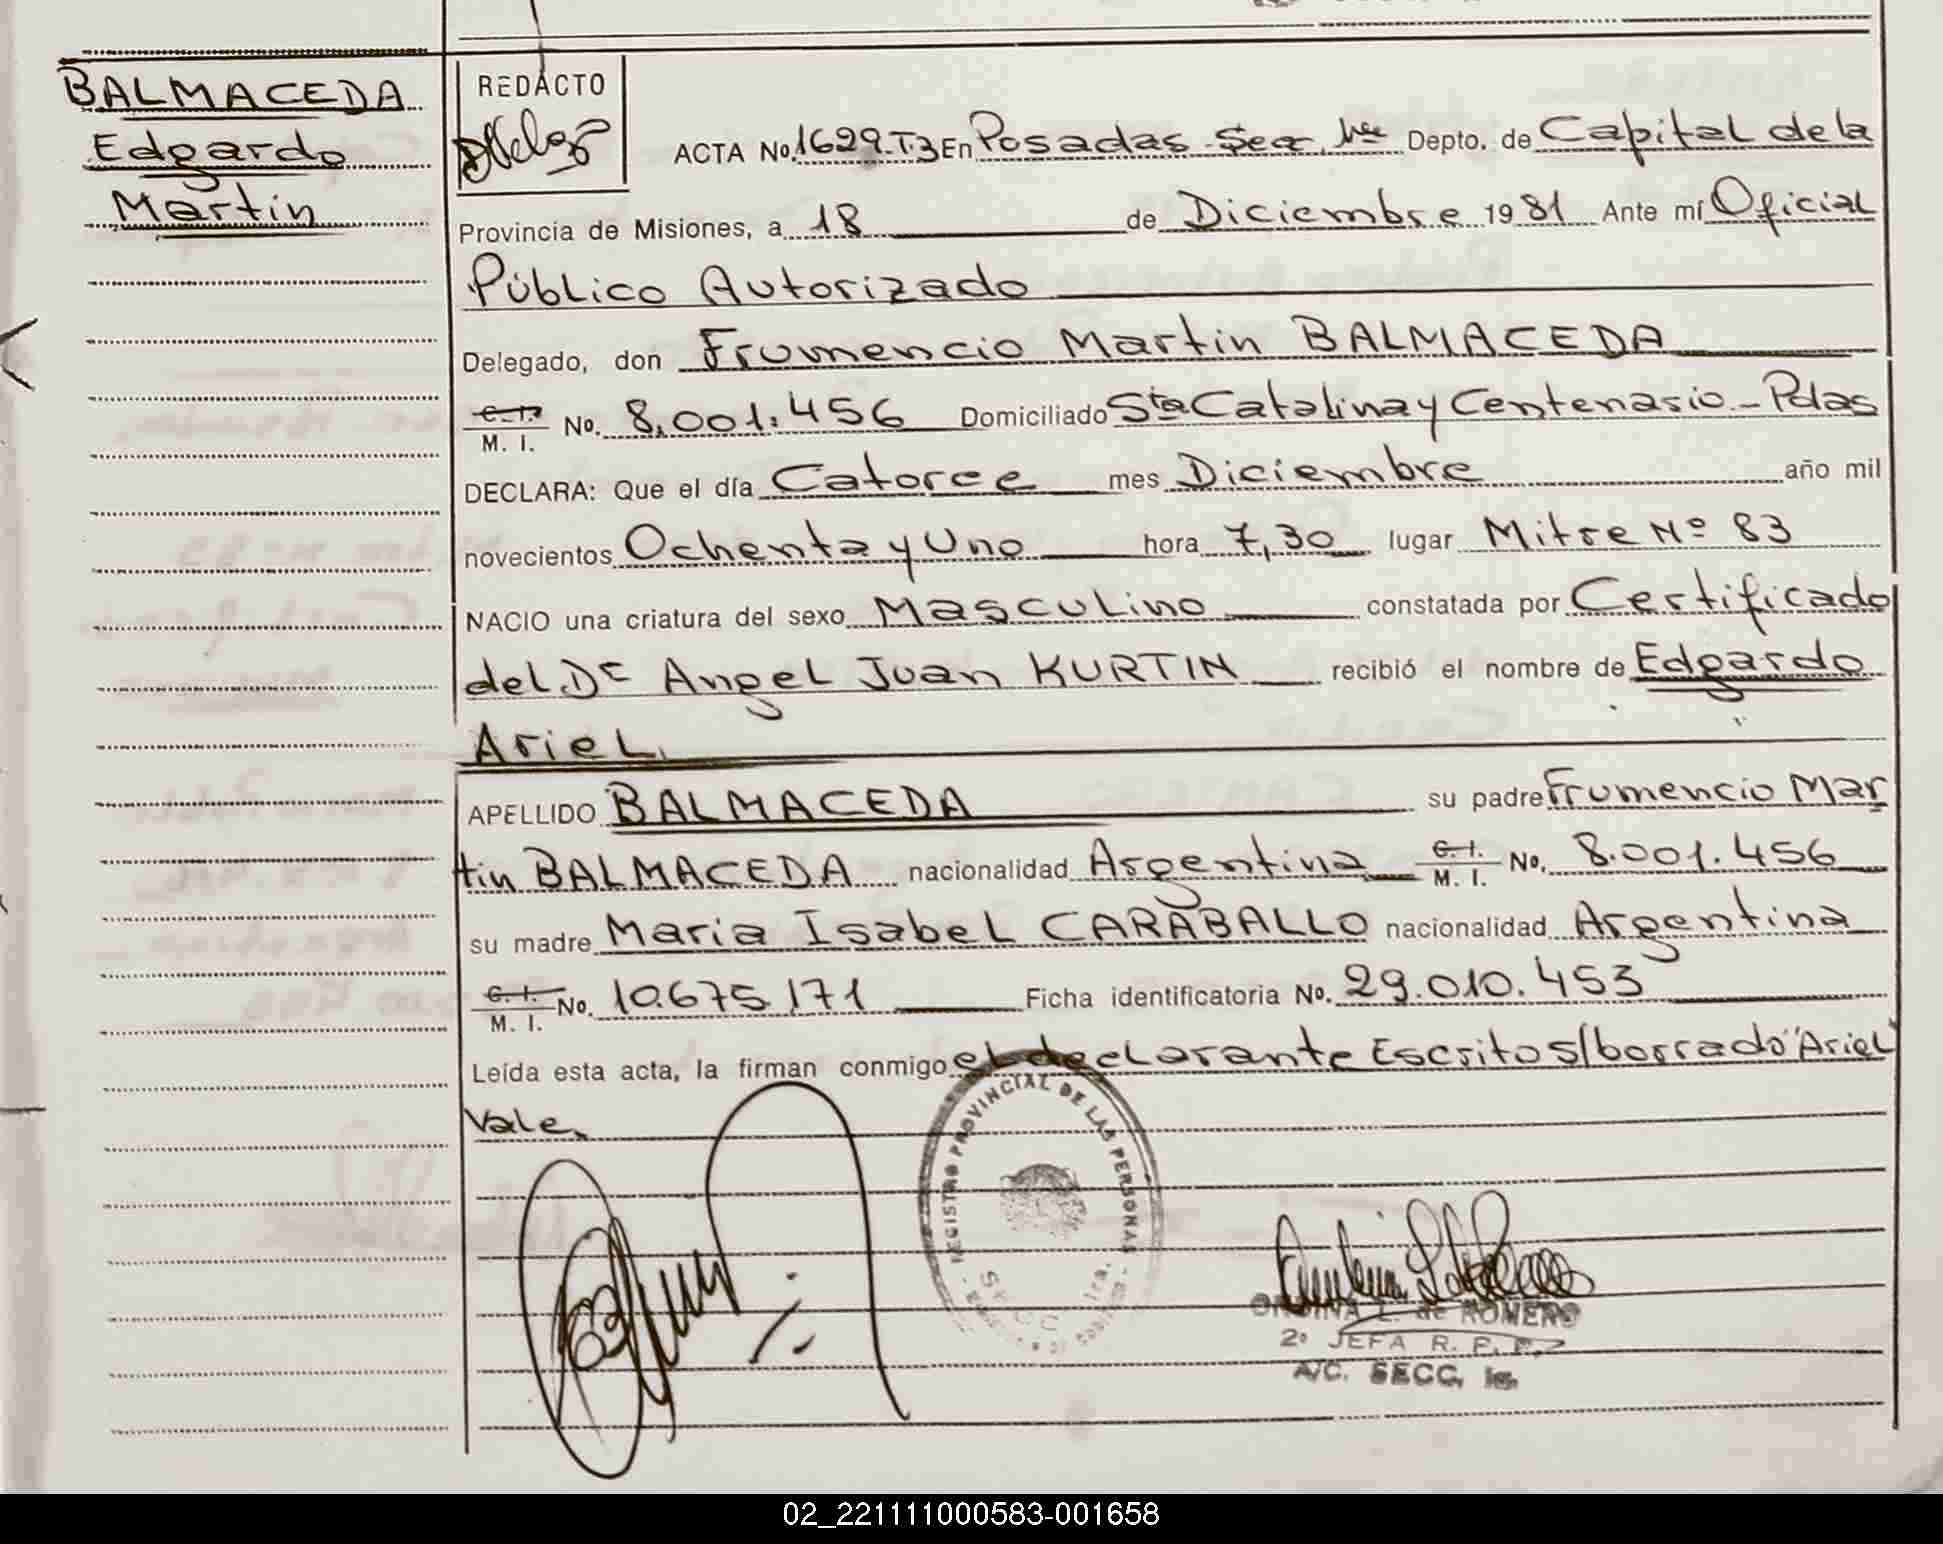 BALMACEDA
Edgardo
Martin
REDACTO
ACTA No. 1629.T.3 En Posadas Secc. 1ra Depto. de Capital de la
Provincia de Misiones, a 18 de Diciembre 1981 Ante mí Oficial
Público Autorizado
Delegado, don Frumencio Martin BALMACEDA
C. I.
M. I. No. 8.001.456 Domiciliado Sta Catalina y Centenario - Pdas
DECLARA: Que el día Catorce mes Diciembre año mil
novecientos Ochenta y Uno hora 7,30 lugar Mitre Nº 83
NACIO una criatura del sexo Masculino constatada por Certificado
del Dr Angel Juan KURTIN recibió el nombre de Edgardo
Ariel.
APELLIDO BALMACEDA su padre Frumencio Mar
tin BALMACEDA nacionalidad Argentina C. I.
M. I. No. 8.001.456
su madre Maria Isabel CARABALLO nacionalidad Argentina
C. I.
M. I. No. 10.675.171 Ficha identificatoria No. 29.010.453
Leída esta acta, la firman conmigo el declarante Escrito s/borrado "Ariel"
Vale.
REGISTRO PROVINCIAL DE LAS PERSONAS
L. de ROMERO
2º JEFA R. P. P.
A/C. SECC. 1ª
02_221111000583-001658